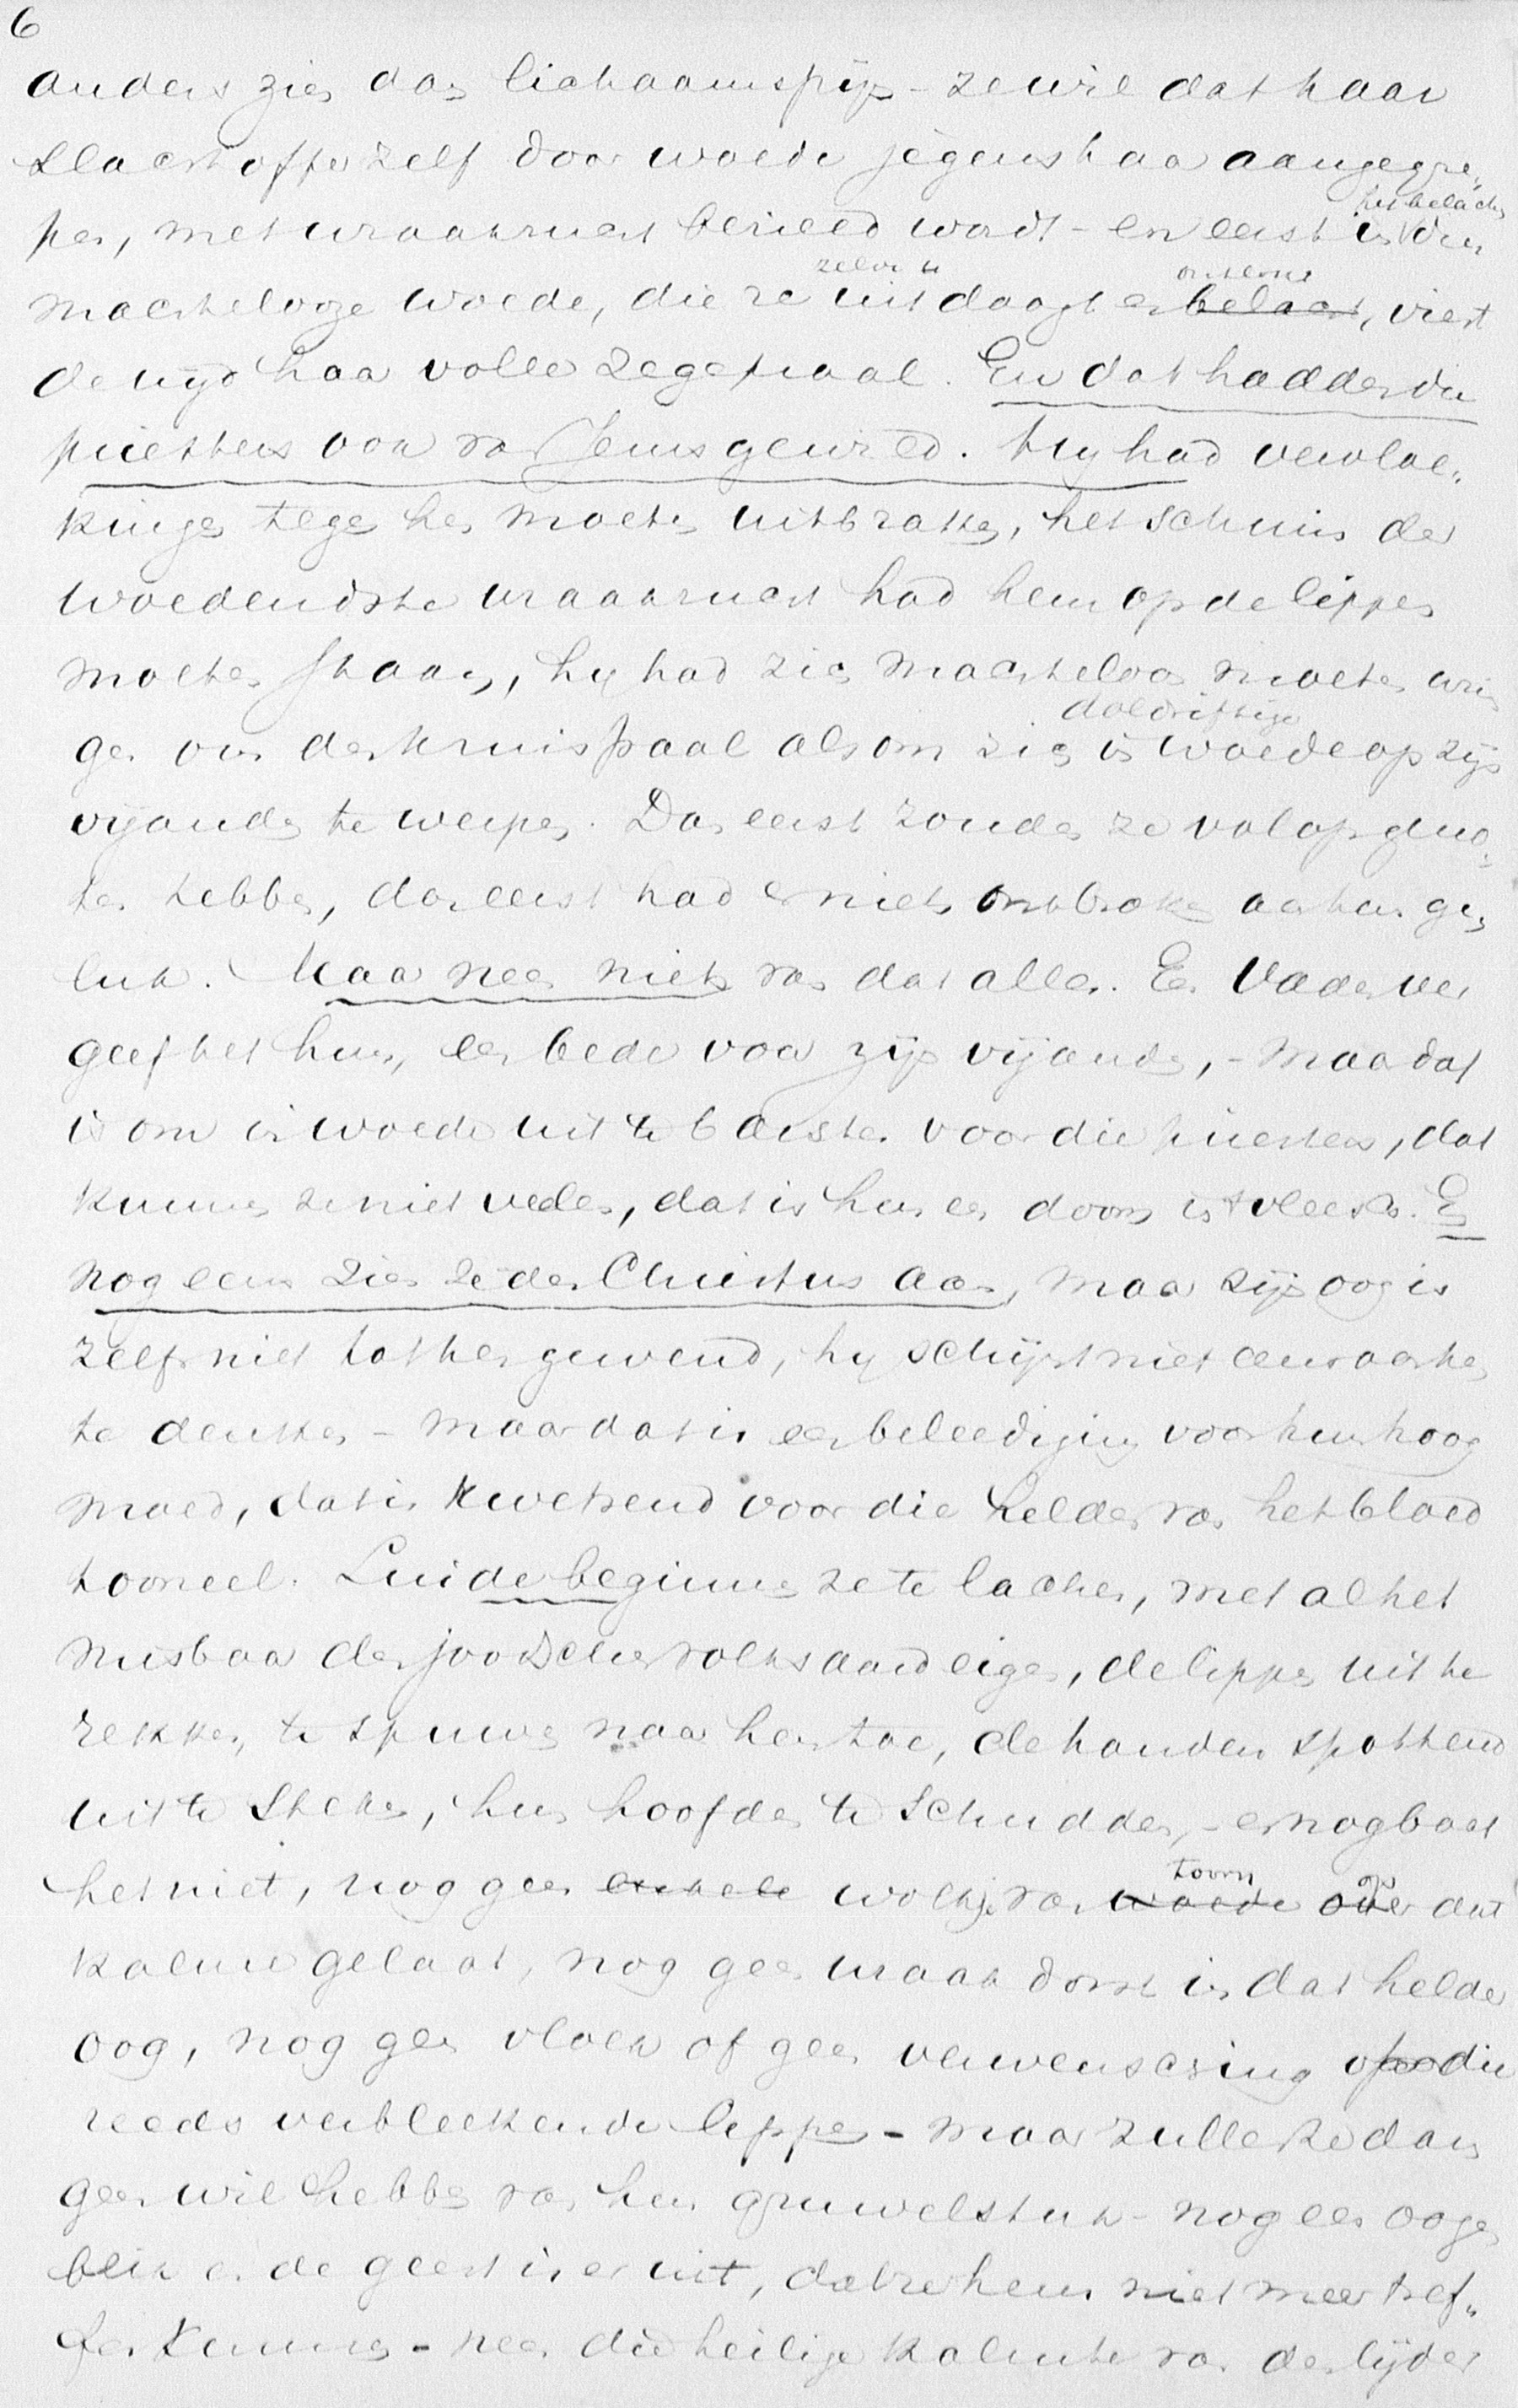 6
anders ziet dan lichaamspijn - ze wil dat haar
slachtoffer zelf door woede jegens haar aangegre„
pen, met wraakzucht bezield wordt - en eerst in die
het belachen
machtelooze woede, die ze zelve uitdaagt en belacht, viert
de nijd haar volle zegepraal. En dat hadden die
priesters ook van Jezus gewild. Hij had vervloe„
kingen tegen hen moeten uitbraken, het schuim der
woedendste wraakzucht had hem op de lippen
moeten staan, hij had zich machteloos moeten wrin
gen om den kruispaal als om zich in doldriftige woede op zijn
vijanden te werpen. Dan eerst zouden ze volop geno„
ten hebben, dan eerst had er niets ontbroken aan hun ge„
luk. Maar neen niets van dat alles. Een Vader ver
geef het hun, een bede voor zijn vijanden, - maar dat
is om in woede uit te barsten voor die priesters, dat
kunnen ze niet velen, dat is hun een doorn in 't vleesch. En
nog eens zien ze den Christus aan, maar zijn oog is
zelfs niet tot hen gewend, hij schijnt niet eens aan hen
te denken - maar dat is een beleediging voor hun hoog
moed, dat is kwetsend voor die helden van het bloed
tooneel. Luide beginnen ze te lachen, met al het
misbaar der joodschen volksaard eigen, de lippen uit te
rekken, te spuwen naar hem toe, de handen spottend
uit te steken, hun hoofden te schudden, - en nog baat
het niet, nog geen enkele wolkje van woede toorn over op dat
kalme gelaat, nog geen wraakdorst in dat helder
oog, nog geen vloek of geen verwensching op die
reeds verbleekende lippen - maar zullen ze dan
geen wil hebben van hun gruwelstuk - nog een oogen
blik en de geest is er uit, dat ze hem niet meer tref„
fen kunnen - neen die heilige kalmte van den lijder